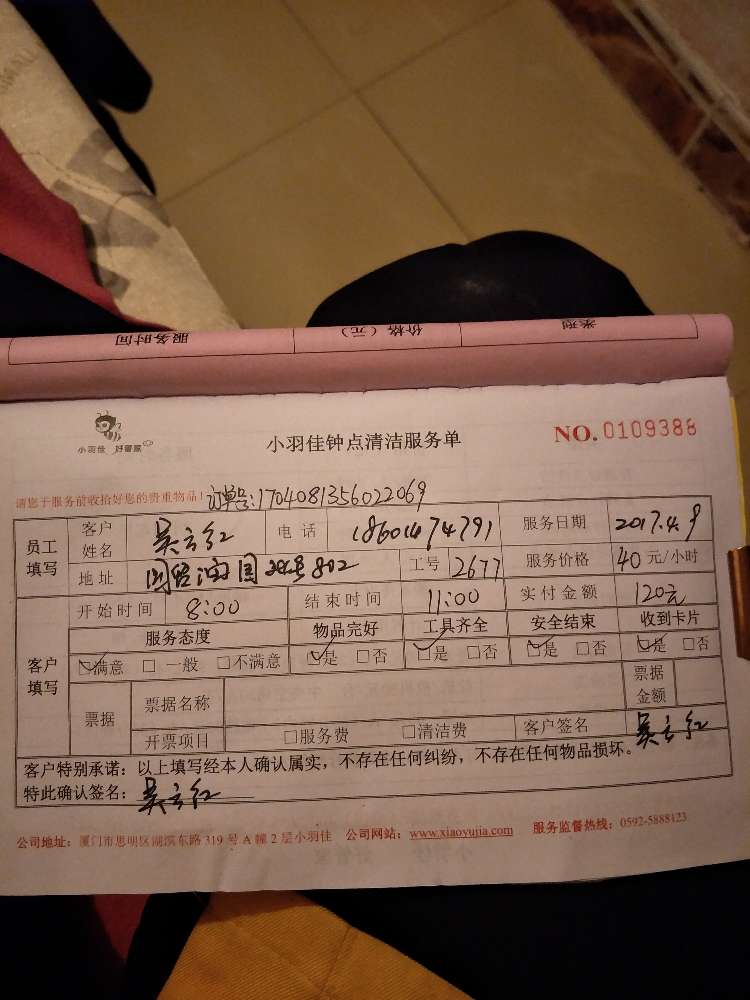 服务时间 价格（元） 类型
小羽佳 好管家
小羽佳钟点清洁服务单
NO. 0109388
请您于服务前收拾好您的贵重物品！订单号:1704081356022069
员工填写 客户姓名 吴立红 电话 18601474791 服务日期 2017.4.9
地址 802 工号 2677 服务价格 40元/小时
客户填写 开始时间 8:00 结束时间 11:00 实付金额 120元
服务态度 物品完好 工具齐全 安全结束 收到卡片
☑满意 □一般 □不满意 ☑是 □否 ☑是 □否 ☑是 □否 ☑是 □否
票据 票据名称 票据金额
开票项目 □服务费 □清洁费 客户签名 吴立红
客户特别承诺：以上填写经本人确认属实，不存在任何纠纷，不存在任何物品损坏。
特此确认签名：吴立红
公司地址：厦门市思明区湖滨东路319号A幢2层小羽佳 公司网站：www.xiaoyujia.com 服务监督热线：0592-5888123